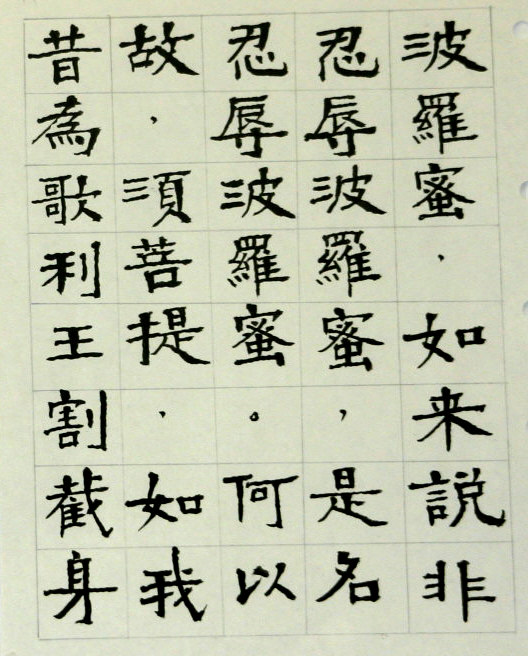 波羅蜜，如来説非
忍辱波羅蜜，是名
忍辱波羅蜜。何以
故，湏菩提，如我
昔為歌利王割截身